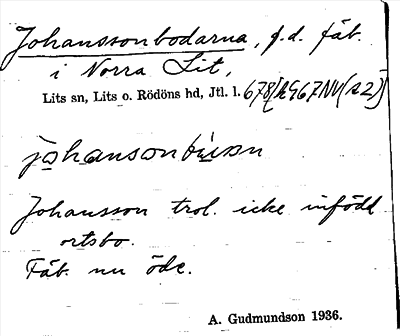 Johanssonbodarna, f.d. fäb.
i Norra Lit,
Lits sn, Lits o. Rödöns hd, Jtl. l. 678
johansonbu̇an
Johansson trol. icke infödd
ortsbo.
Fäb. nu öde.
A. Gudmundson 1936.